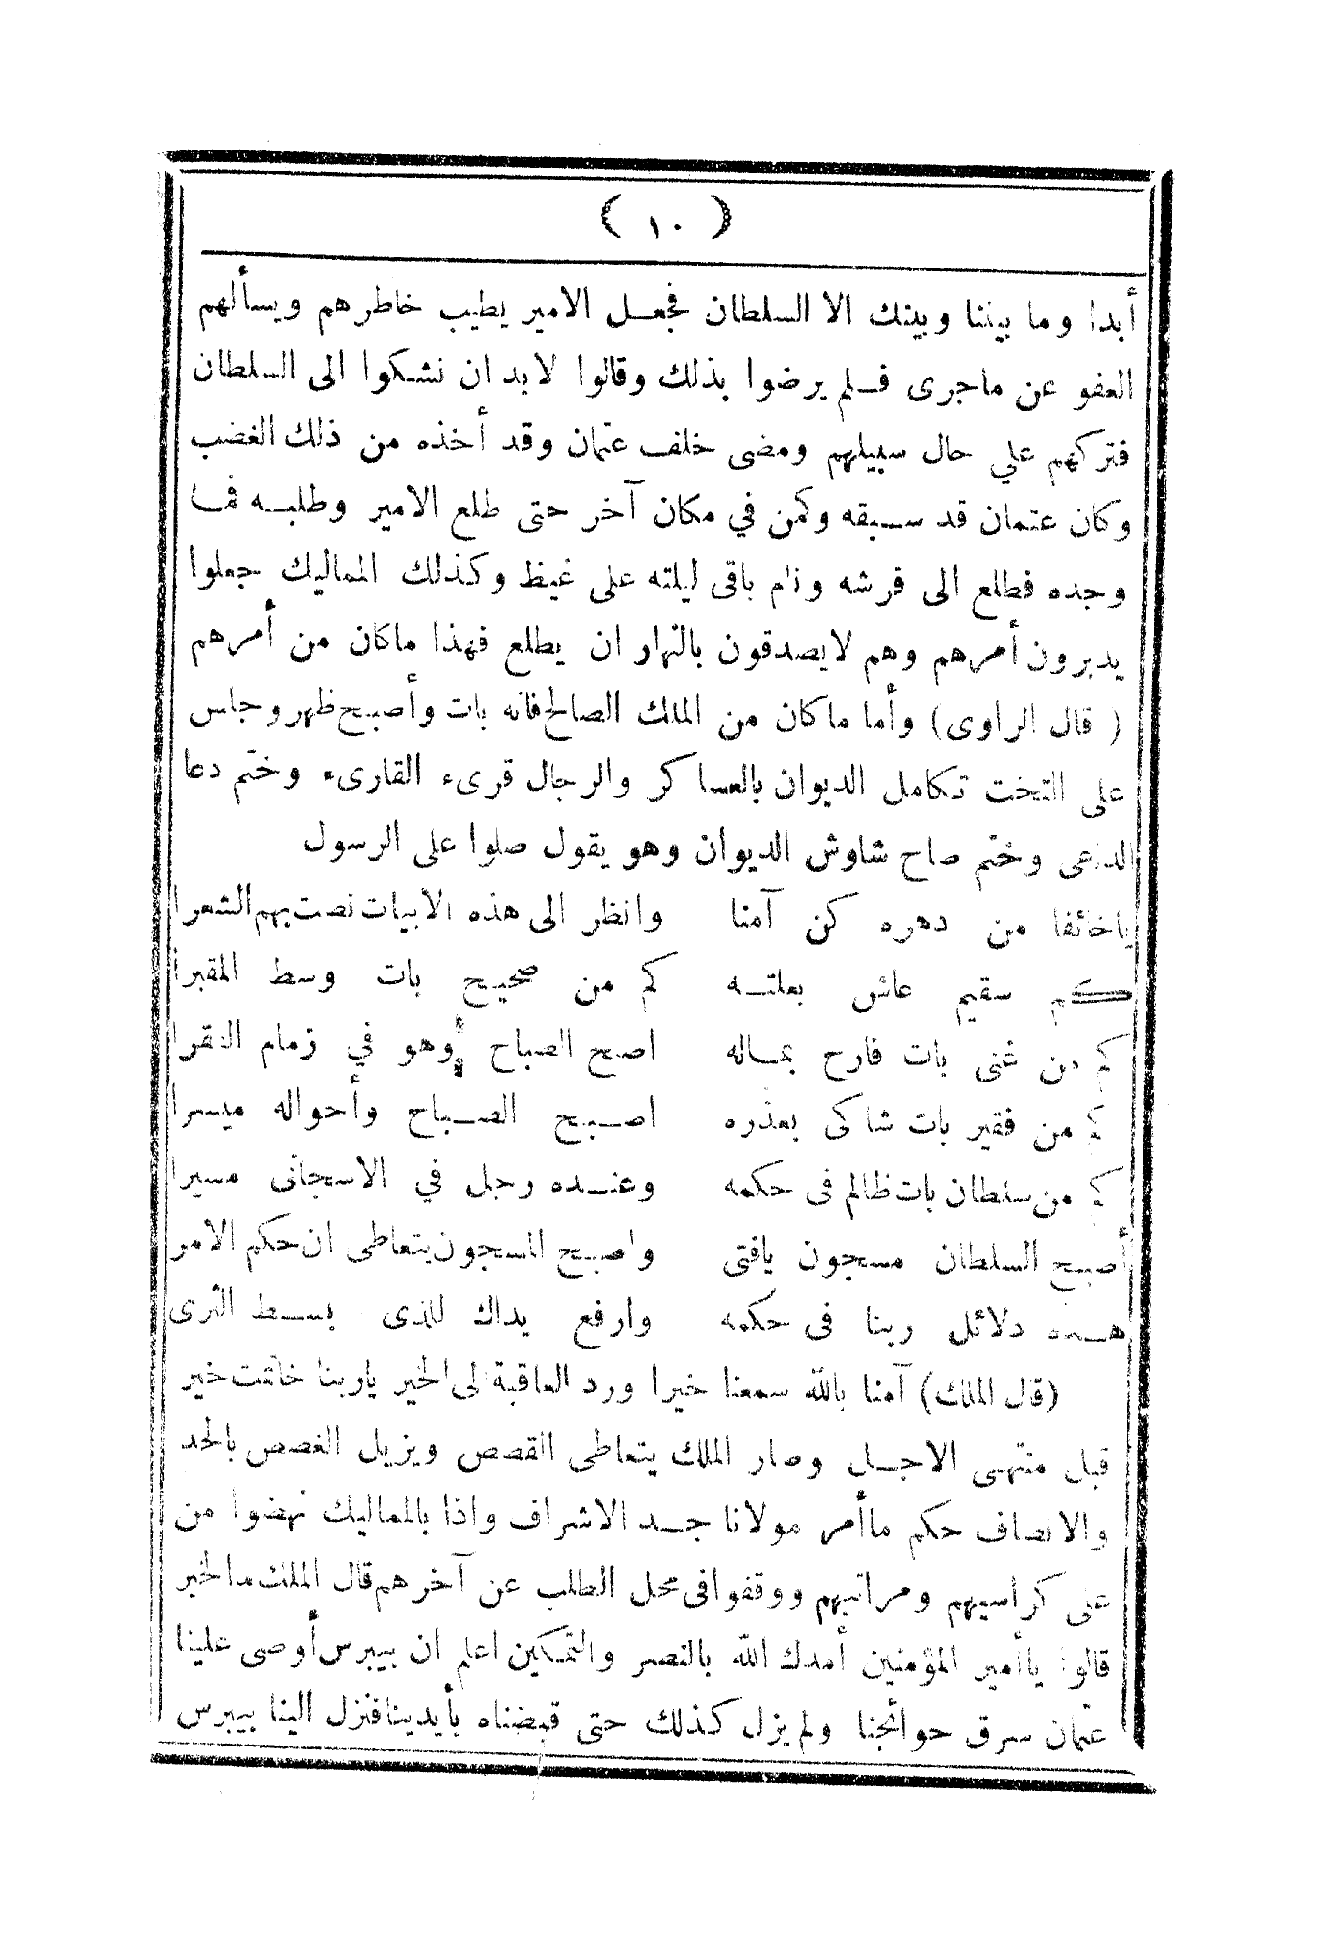 ( ١٠ )
أبدا وما بيننا وبينك الا السلطان فجعل الامير يطيب خاطرهم ويسألهم
العفو عن ماجرى فلم يرضوا بذلك وقالوا لابد ان نشكوا الى السلطان
فتركهم علي حال سبيلهم ومضى خلف عثمان وقد أخذه من ذلك الغضب
وكان عثمان قد سبقه وكمن في مكان آخر حتى طلع الامير وطلبه فما
وجده فطلع الى فرشه ونام باقى ليلته على غيظ وكذلك المماليك جعلوا
يدبرون أمرهم وهم لايصدقون بالنهار ان يطلع فهذا ماكان من أمرهم
( قال الراوى ) وأما ماكان من الملك الصالح فانه بات وأصبح ظهر وجلس
على التخت تكامل الديوان بالعساكر والرجال قرىء القارىء وختم دعا
الداعى وختم صاح شاوش الديوان وهو يقول صلوا على الرسول
ياخائفا من دهره كن آمنا وانظر الى هذه الابيات نصت بهم الشعرا
كم سقيم عاش بعلته كم من صحيح بات وسط المقبرا
كم من غنى بات فارح بماله اصبح الصباح وهو في زمام الفقرا
كم من فقير بات شاكى بعذره اصبح الصباح وأحواله ميسرا
كم من سلطان بات ظالم فى حكمه وعنده رجل في الاسجانى مسيرا
أصبح السلطان مسجون يافتى واصبح المسجون يتعاطى ان حكم الامر
هذه دلائل ربنا فى حكمه وارفع يداك للذى بسط الثرى
(قال الملك) آمنا بالله سمعنا خيرا ورد العاقبة الى الخير ياربنا خاتمت خير
قبل منتهى الاجل وصار الملك يتعاطى القصص ويزيل الغصص بالحد
والانصاف حكم ماأمر مولانا جد الاشراف واذا بالمماليك نهضوا من
على كرأسيهم ومراتبهم ووقفوا فى محل الطلب عن آخرهم قال الملك ماالخبر
قالوا ياأمير المؤمنين أمدك الله بالنصر والتمكين اعلم ان بيبرس أوصى علينا
عثمان سرق حوائجنا ولم يزل كذلك حتى قبضناه بأيدينا فنزل الينا بيبرس